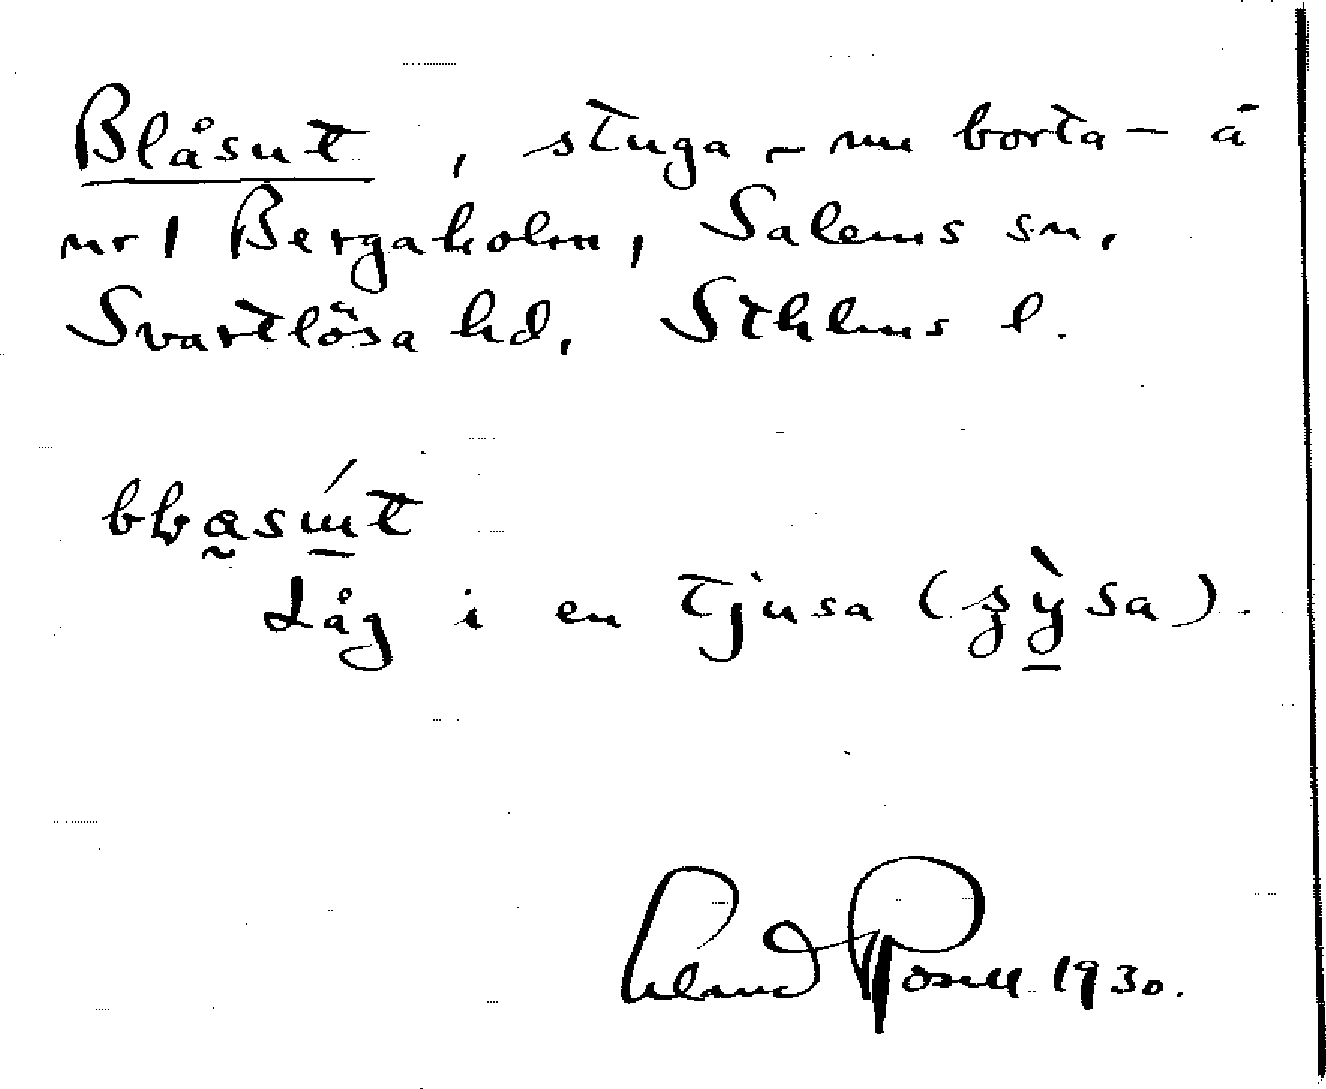 Blåsut, stuga – nu borta – å
nr 1 Bergaholm, Salems sn,
Svartlösa hd, Sthlms l.
Låg i en tjusa
1930.